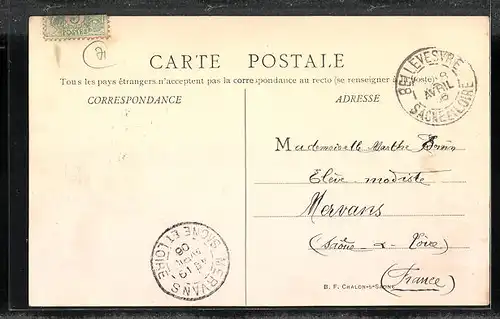 POSTES
CARTE POSTALE
Tous les pays étrangers n'acceptent pas la correspondance au recto (se renseigner à la Poste)
CORRESPONDANCE
ADRESSE
BELLEVESVRE
AVRIL
SAÔNE ET LOIRE
Mademoiselle Marthe
Elève modiste
Mervans
(Saône & Loire)
(France)
MERVANS
19
08
SAONE ET LOIRE
B. F. CHALON-S-SAONE